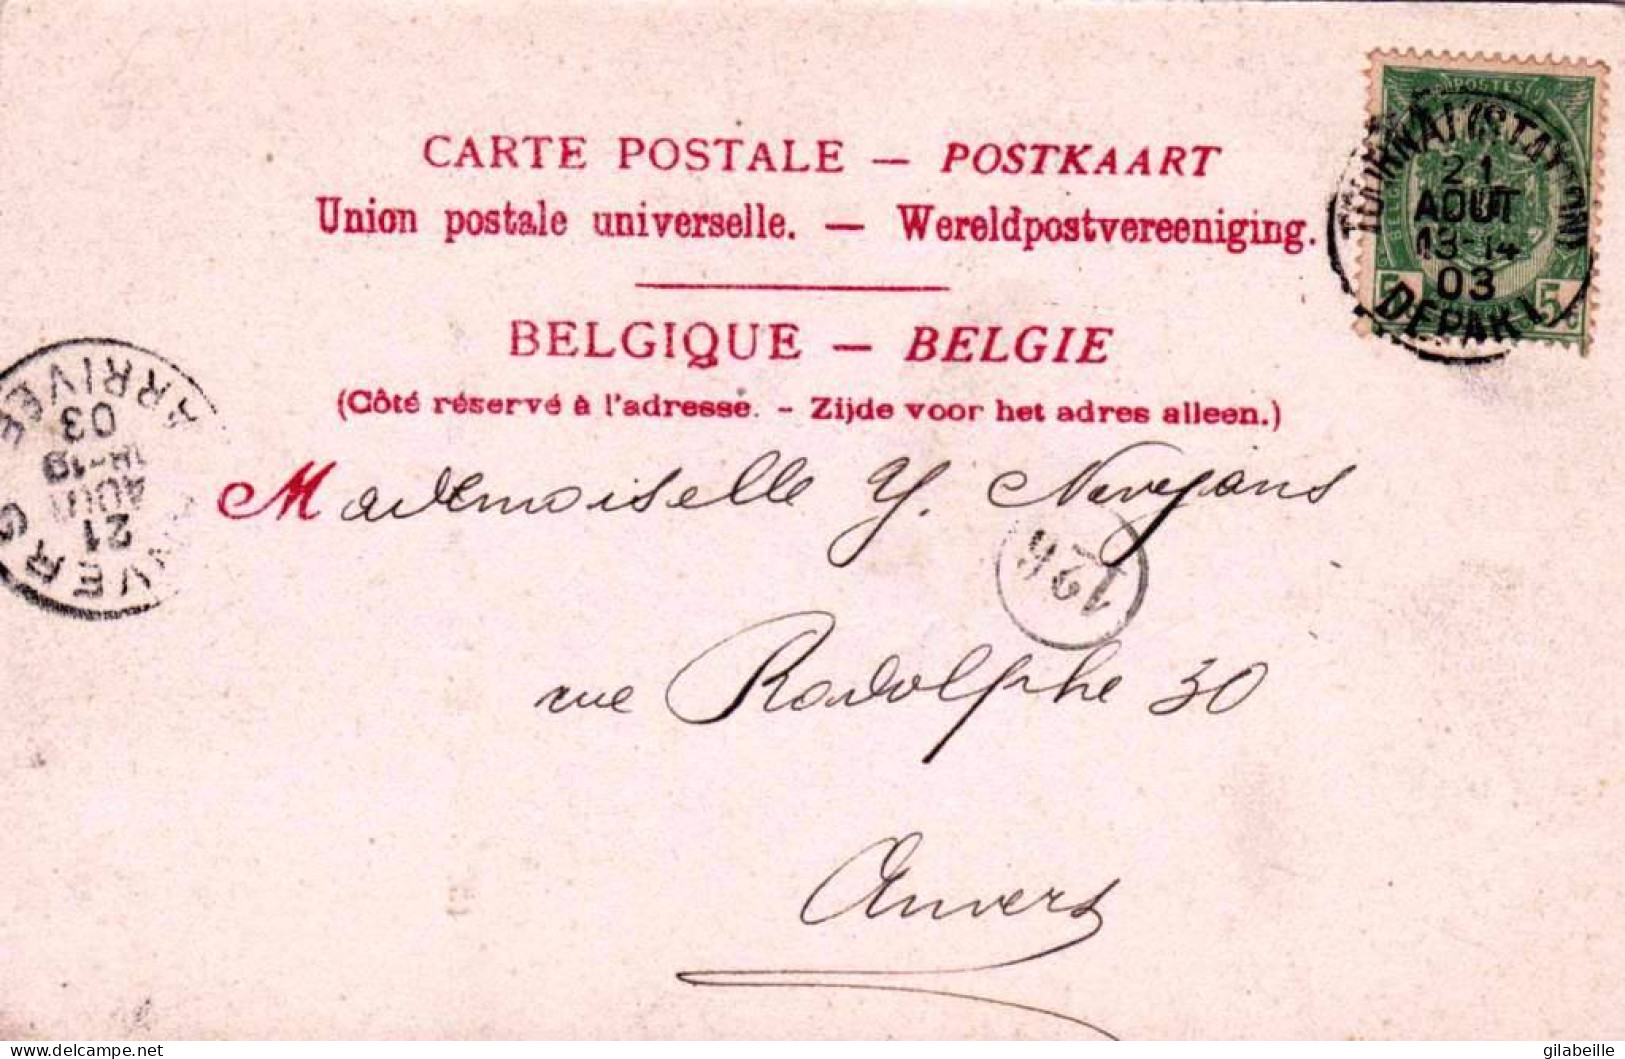 CARTE POSTALE — POSTKAART
Union postale universelle. — Wereldpostvereeniging.
BELGIQUE — BELGIE
(Côté réservé à l'adresse. - Zijde voor het adres alleen.)
POSTES
5 5
TOURNAI (STATION)
21
AOUT
13-14
03
DEPART
ARRIVÉE
03
18-19
AOUT
21
Mademoiselle Y.
126
rue Rodolphe 30
Anvers
delcampe.net
gilabeille